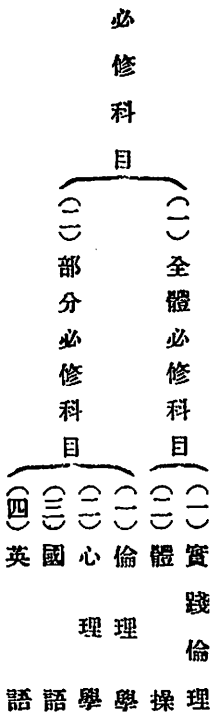 必修科目
(一)全體必修科目
(一)實踐倫理
(二)體操
(二)部分必修科目
(一)倫理學
(二)心理學
(三)國語
(四)英語